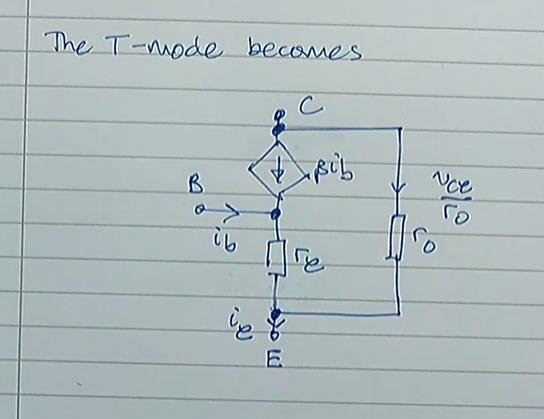 The T-mode becomes
C
βib
B
vce
ro
ib
re
ro
ie
E